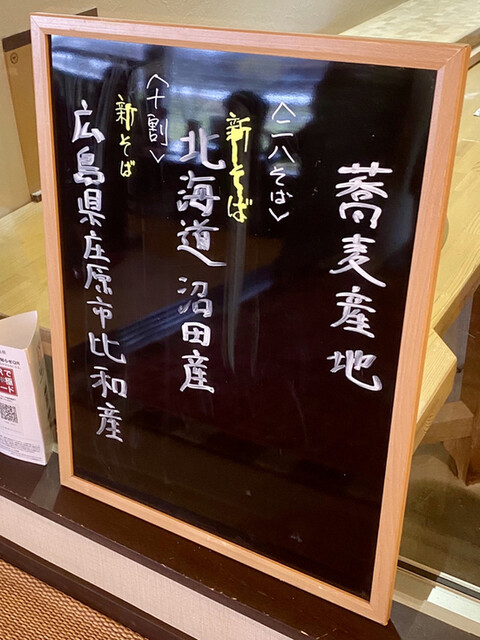 蕎麦産地
〈二八そば〉
新そば
北海道 沼田産
〈十割〉
新そば
広島県庄原市比和産